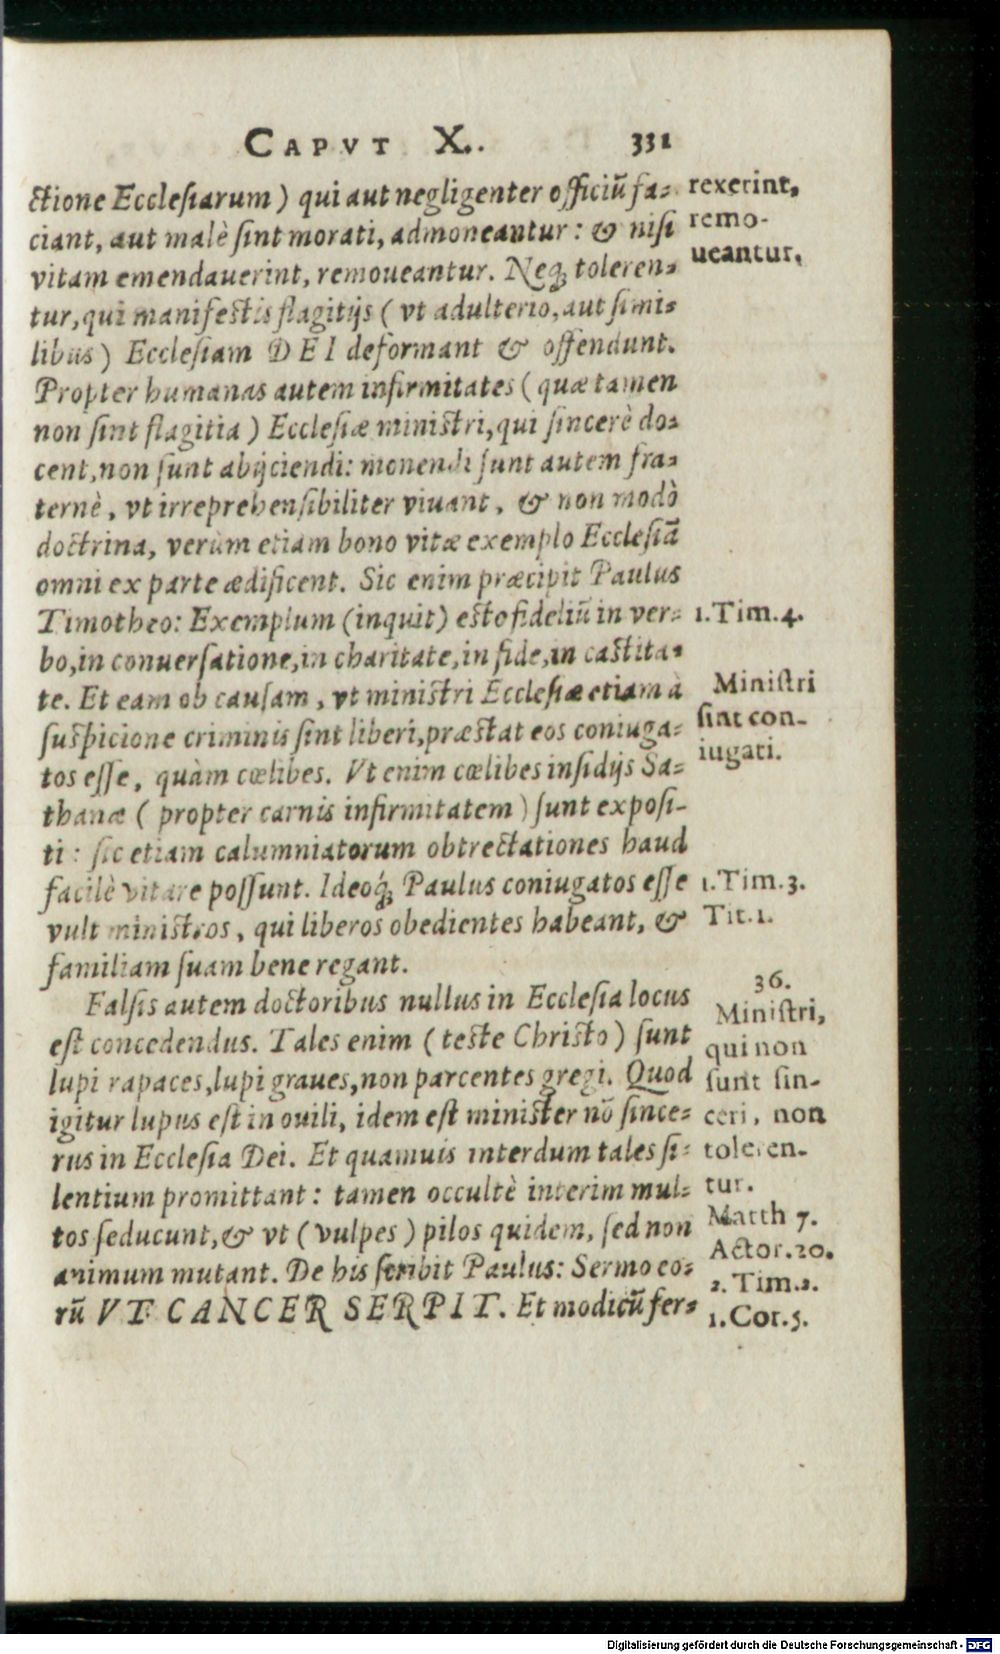 CAPVT X. 331
ctione Ecclesiarum) qui aut negligenter officiũ fa-
ciant, aut malè sint morati, admoneantur: & nisi
vitam emendauerint, remoueantur. Neq́; toleren-
tur, qui manifestis flagitijs (vt adulterio, aut simi-
libus) Ecclesiam DEI deformant & offendunt.
Propter humanas autem infirmitates (quæ tamen
non sint flagitia) Ecclesiæ ministri, qui sincerè do-
cent, non sunt abijciendi: monendi sunt autem fra-
ternè, vt irreprehensibiliter viuant, & non modò
doctrina, verùm etiam bono vitæ exemplo Ecclesiã
omni ex parte ædificent. Sic enim præcipit Paulus
Timotheo: Exemplum (inquit) esto fideliũ in ver-
bo, in conuersatione, in charitate, in fide, in castita-
te. Et eam ob causam, vt ministri Ecclesiæ etiam à
suspicione criminis sint liberi, præstat eos coniuga-
tos esse, quàm cœlibes. Vt enim cœlibes insidijs Sa-
thanæ (propter carnis infirmitatem) sunt exposi-
ti: sic etiam calumniatorum obtrectationes haud
facilè vitare possunt. Ideoq́; Paulus coniugatos esse
vult ministros, qui liberos obedientes habeant, &
familiam suam bene regant.
Falsis autem doctoribus nullus in Ecclesia locus
est concedendus. Tales enim (teste Christo) sunt
lupi rapaces, lupi graues, non parcentes gregi. Quod
igitur lupus est in ouili, idem est minister nõ since-
rus in Ecclesia Dei. Et quamuis interdum tales si-
lentium promittant: tamen occultè interim mul-
tos seducunt, & vt (vulpes) pilos quidem, sed non
animum mutant. De his scribit Paulus: Sermo eo-
rũ VT CANCER SERPIT. Et modicũ fer-
rexerint,
remo-
ueantur.
1. Tim. 4.
Ministri
sint con-
iugati.
1. Tim. 3.
Tit. 1.
36.
Ministri,
qui non
sunt sin-
ceri, non
toleren-
tur.
Matth 7.
Actor. 20.
2. Tim. 2.
1. Cor. 5.
Digitalisierung gefördert durch die Deutsche Forschungsgemeinschaft - DFG